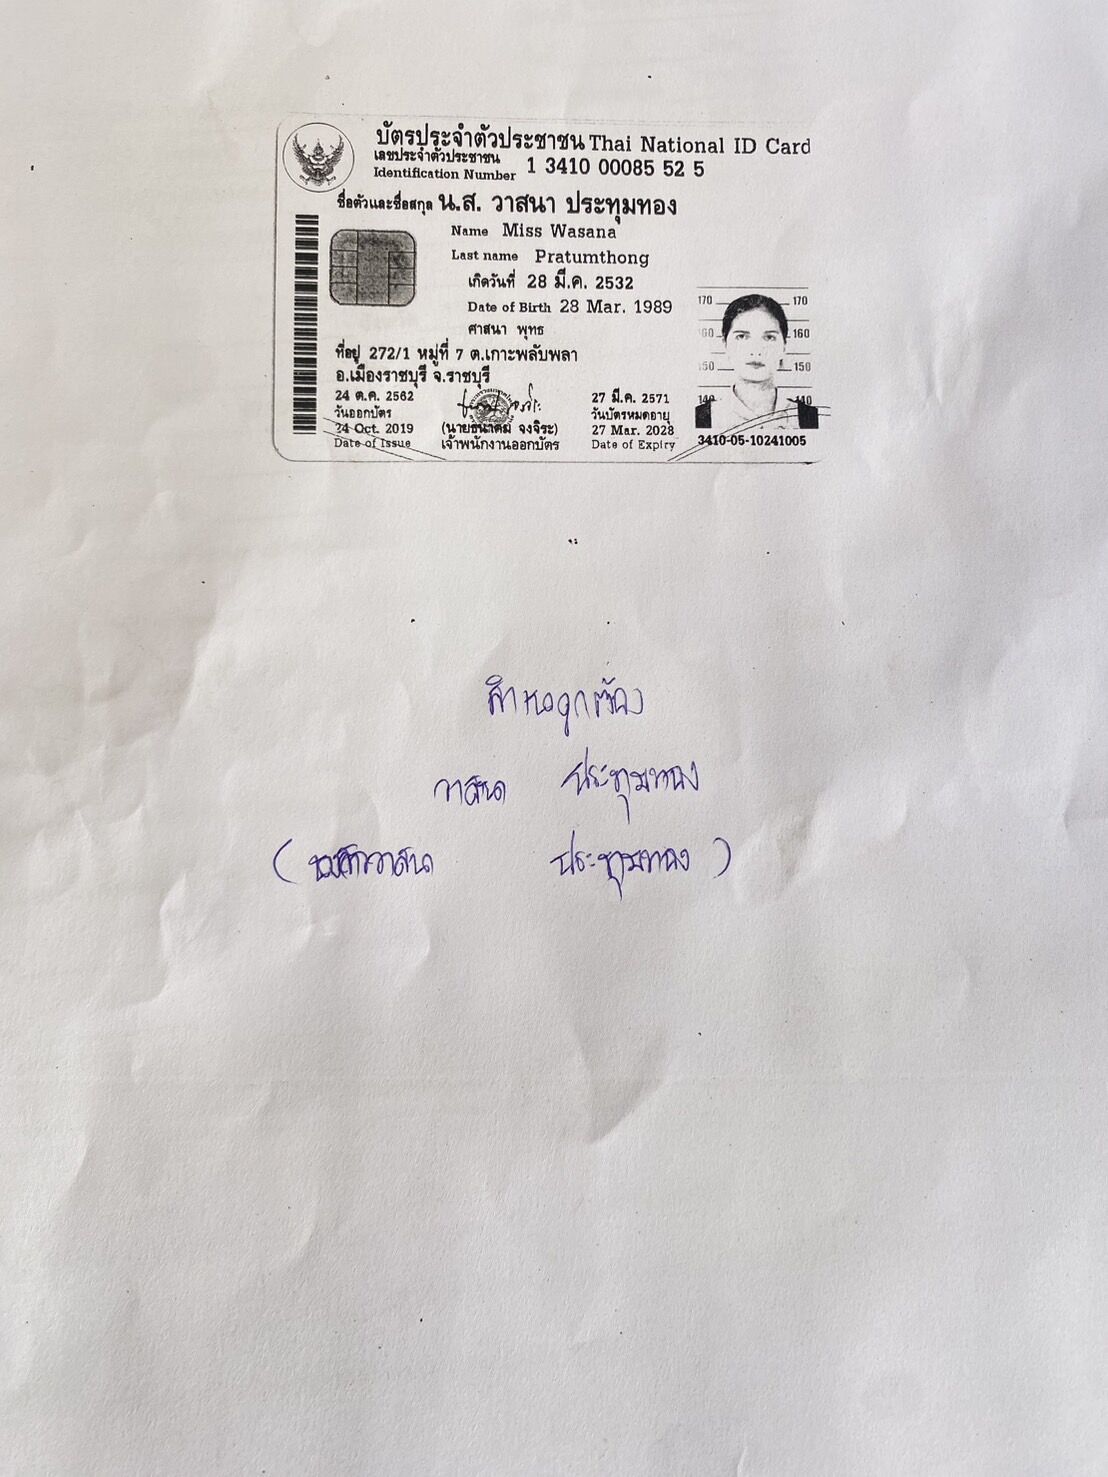 บัตรประจำตัวประชาชน Thai National ID Card
เลขประจำตัวประชาชน
Identification Number 1 3410 00085 52 5
ชื่อตัวและชื่อสกุล น.ส. วาสนา ประทุมทอง
Name Miss Wasana
Last name Pratumthong
เกิดวันที่ 28 มี.ค. 2532
Date of Birth 28 Mar. 1989
ศาสนา พุทธ
ที่อยู่ 272/1 หมู่ที่ 7 ต.เกาะพลับพลา
อ.เมืองราชบุรี จ.ราชบุรี
24 ต.ค. 2562
วันออกบัตร
24 Oct. 2019
Date of Issue
(นายธนาคม จงจิระ)
เจ้าพนักงานออกบัตร
27 มี.ค. 2571
วันบัตรหมดอายุ
27 Mar. 2028
Date of Expiry
170 170
160 160
150 150
140 140
3410-05-10241005
สำเนาถูกต้อง
วาสนา ประทุมทอง
(นางสาววาสนา ประทุมทอง)